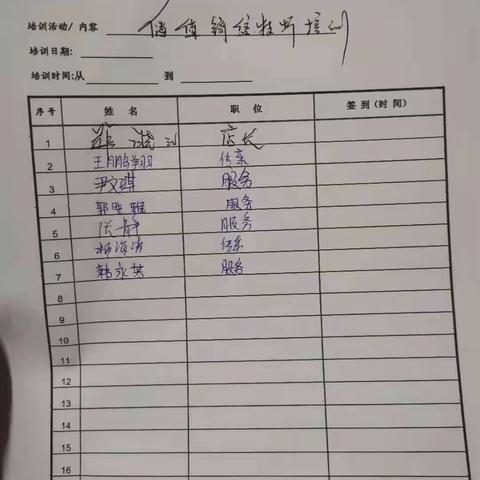 培训活动/ 内容 倩倩销售技巧培训
培训日期:
培训时间:从 到
序号 姓 名 职 位 签 到 (时 间)
1 店长
2 王鹏翔 传菜
3 尹文琪 服务
4 郭 雅 服务
5 张静 服务
6 杨海涛 传菜
7 韩永芳 服务
8
9
10
11
12
13
14
15
16